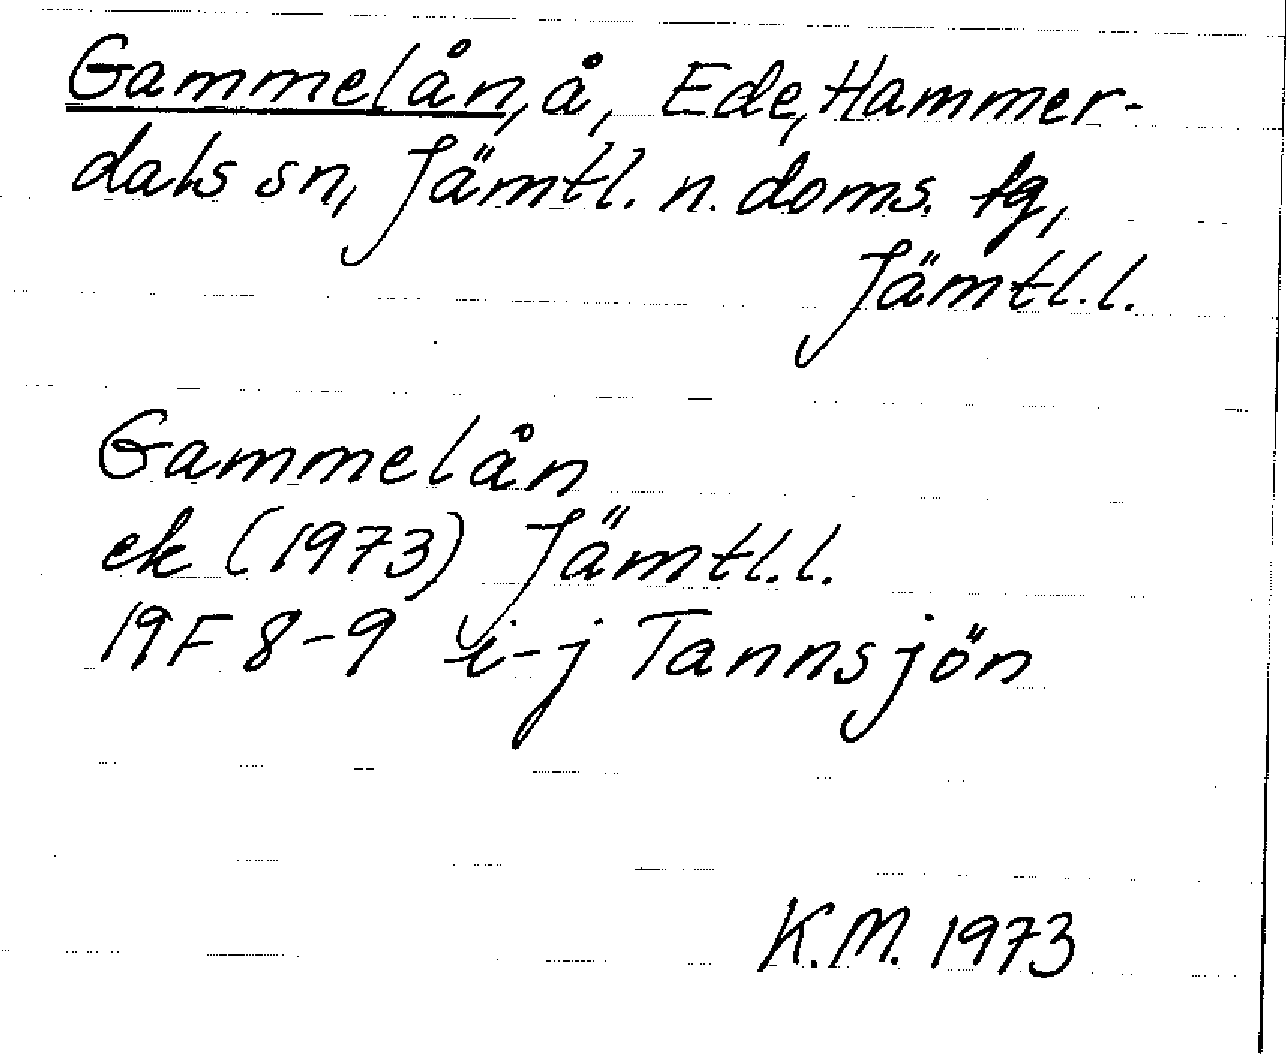 Gammelån, å, Ede, Hammer-
dals sn, Jämtl. n. doms. tg,
Jämtl. l.
Gammelån
ek (1973) Jämtl. l.
19F 8-9 i-j Tannsjön
K.M. 1973